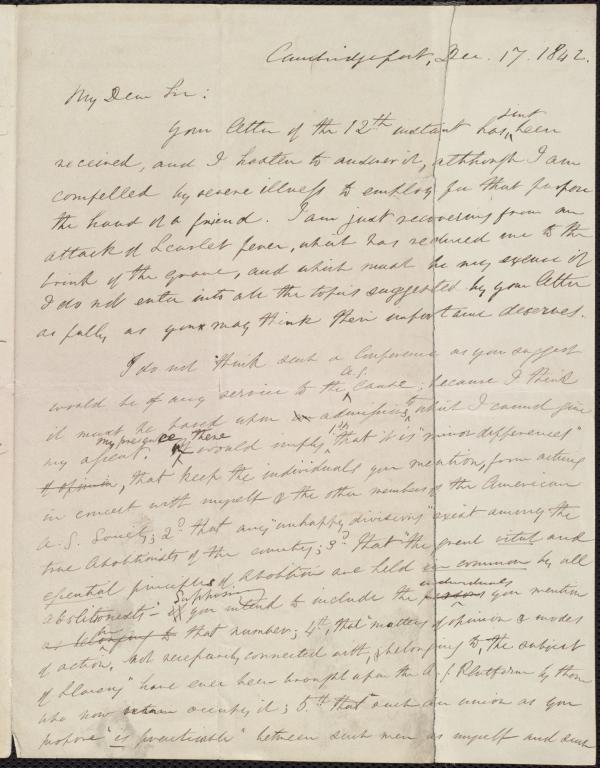 Cambridgeport, Dec. 17. 1842.
My Dear Sir:
Your letter of the 12th instant has, just been
received, and I hasten to answer it, although I am
compelled by severe illness to employ for that purpose
the hand of a friend. I am just recovering from an
attack of Scarlet fever, which has reduced me to the
brink of the grave, and which must be my excuse if
I do not enter into all the topics suggested by your letter
as fully as you may think their importance deserves.
I do not think such a Conference as you suggest
would be of any service to the A.S. Cause; because I think
it must be based upon admissions to which I cannot give
my assent. my presence there would imply, 1st, that it is "minor differences"
of opinion, that keep the individuals you mention, from acting
in concert with myself & the other members of the American
A. S. Society; 2d that any "unhappy divisions" exist among the
true Abolitionists of the country; 3d That "the great vital and
essential principles of Abolition are held in common by all
abolitionists" – supposing you intend to include the individuals you mention
as belonging to that number; 4th, that "matters of opinion & modes
of action, not necessarily connected with, & belonging to, the subject
of Slavery" have ever been brought upon the A. S. Platform by those
who now occupy it; 5th that such an union as you
propose "is practicable" between such men as myself and such